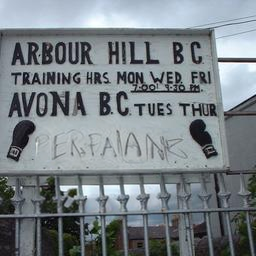 ARBOUR HILL B.C.
TRAINING HRS. MON WED FRI
7.00' 9.30 PM.
AVONA B.C. TUES THUR